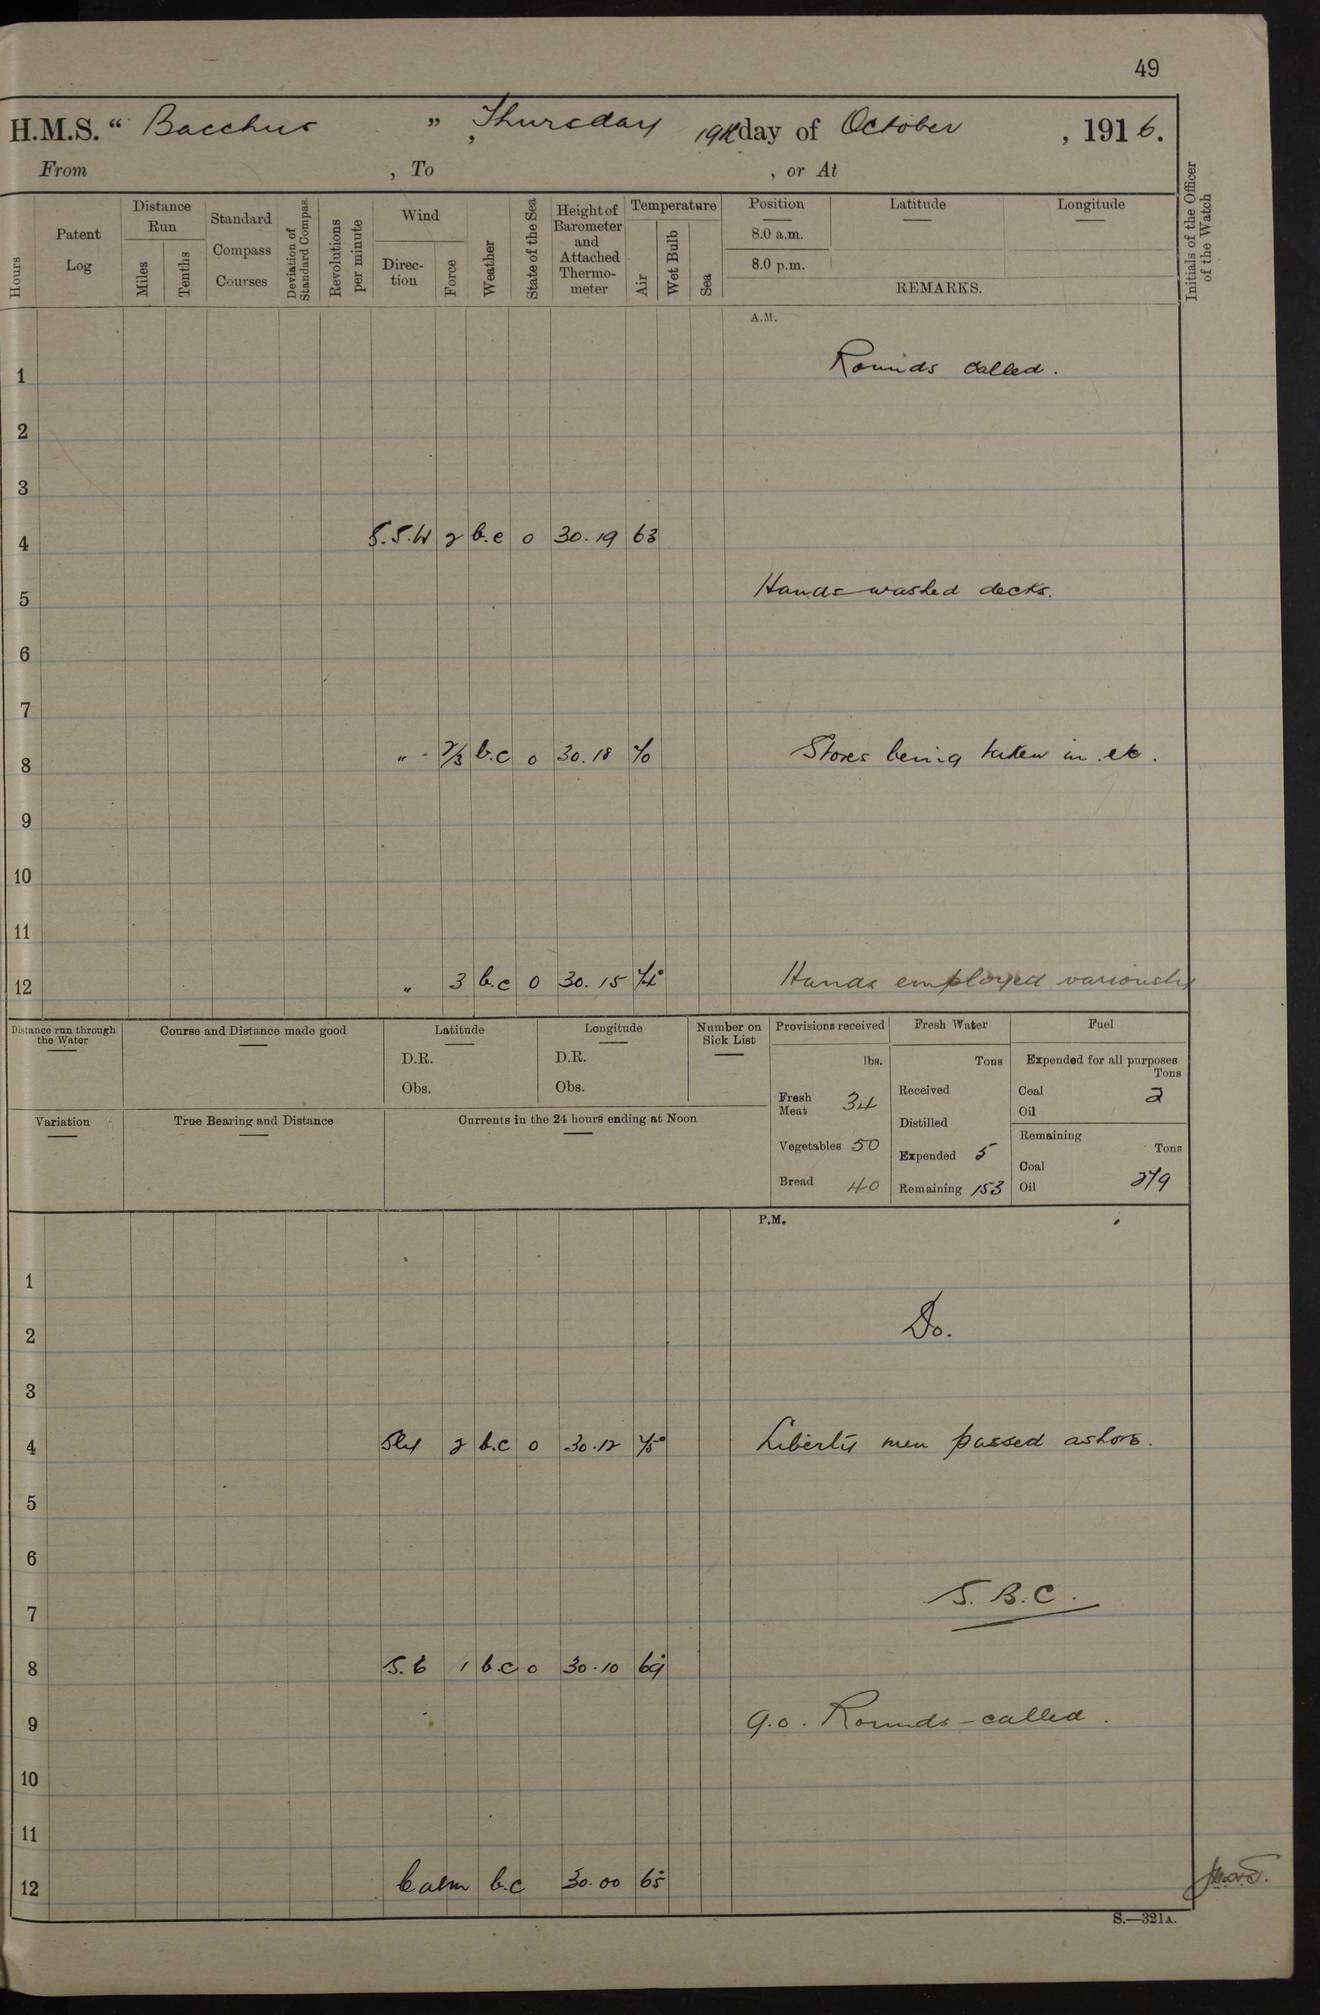 49
H.M.S. “ Bacchus ”, Thursday 19th day of October, 1916.
From , To , or At
Hours
Patent Log
Distance Run
Miles
Tenths
Standard Compass Courses
Deviation of Standard Compas.
Revolutions per minute
Wind
Direc-tion
Force
Weather
State of the Sea
Height of Barometer and Attached Thermo-meter
Temperature
Air
Wet Bulb
Sea
Position
8.0 a.m.
8.0 p.m.
Latitude
Longitude
REMARKS.
Initials of the Officer of the Watch
A.M.
1 Rounds called.
2
3
4 S.S.W 2 b.c 0 30.19 63
5 Hands washed decks.
6
7
8 " 2/3 b.c 0 30.18 70 Stores being taken in etc.
9
10
11
12 " 3 b.c 0 30.15 74° Hands employed variously
Distance run through the Water
Course and Distance made good
Latitude
D.R.
Obs.
Longitude
D.R.
Obs.
Number on Sick List
Provisions received
lbs.
Fresh Meat 34
Vegetables 50
Bread 40
Fresh Water
Tons
Received
Distilled
Expended 5
Remaining 153
Fuel
Expended for all purposes
Tons
Coal 2
Oil
Remaining
Tons
Coal
Oil 279
Variation
True Bearing and Distance
Currents in the 24 hours ending at Noon
P.M.
1
2 Do.
3
4 Sly 2 b.c 0 30.12 75° Liberty men passed ashore.
5
6
7 S.B.C.
8 S.E 1 b.c 0 30.10 69°
9 9.0. Rounds - called.
10
11
12 Calm b.c 30.00 65°
S.—321A.